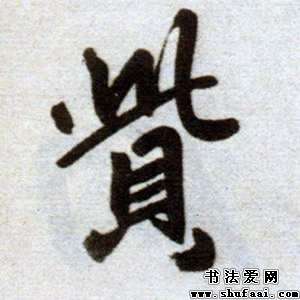 貲
书法爱网
www.shufaai.com